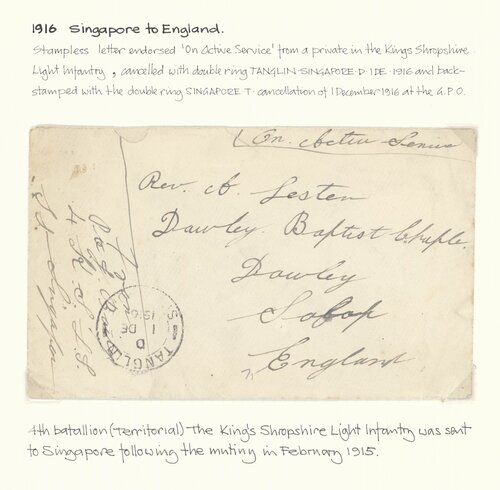 1916 Singapore to England.
Stampless letter endorsed 'On Active Service' from a private in the Kings Shropshire
Light Infantry, cancelled with double ring TANGLIN·SINGAPORE·D·1DE·1916 and back-
stamped with the double ring SINGAPORE T· cancellation of 1 December 1916 at the G.P.O.
On. Active Service
Rev. A. Lester
Dawley. Baptist Chaple.
Dawley
Salop
England
From
4 K. S. L. I.
TANGLIN
D
1 DE
1916
4th batallion (Territorial) The King's Shropshire Light Infantry was sent
to Singapore following the mutiny in February 1915.